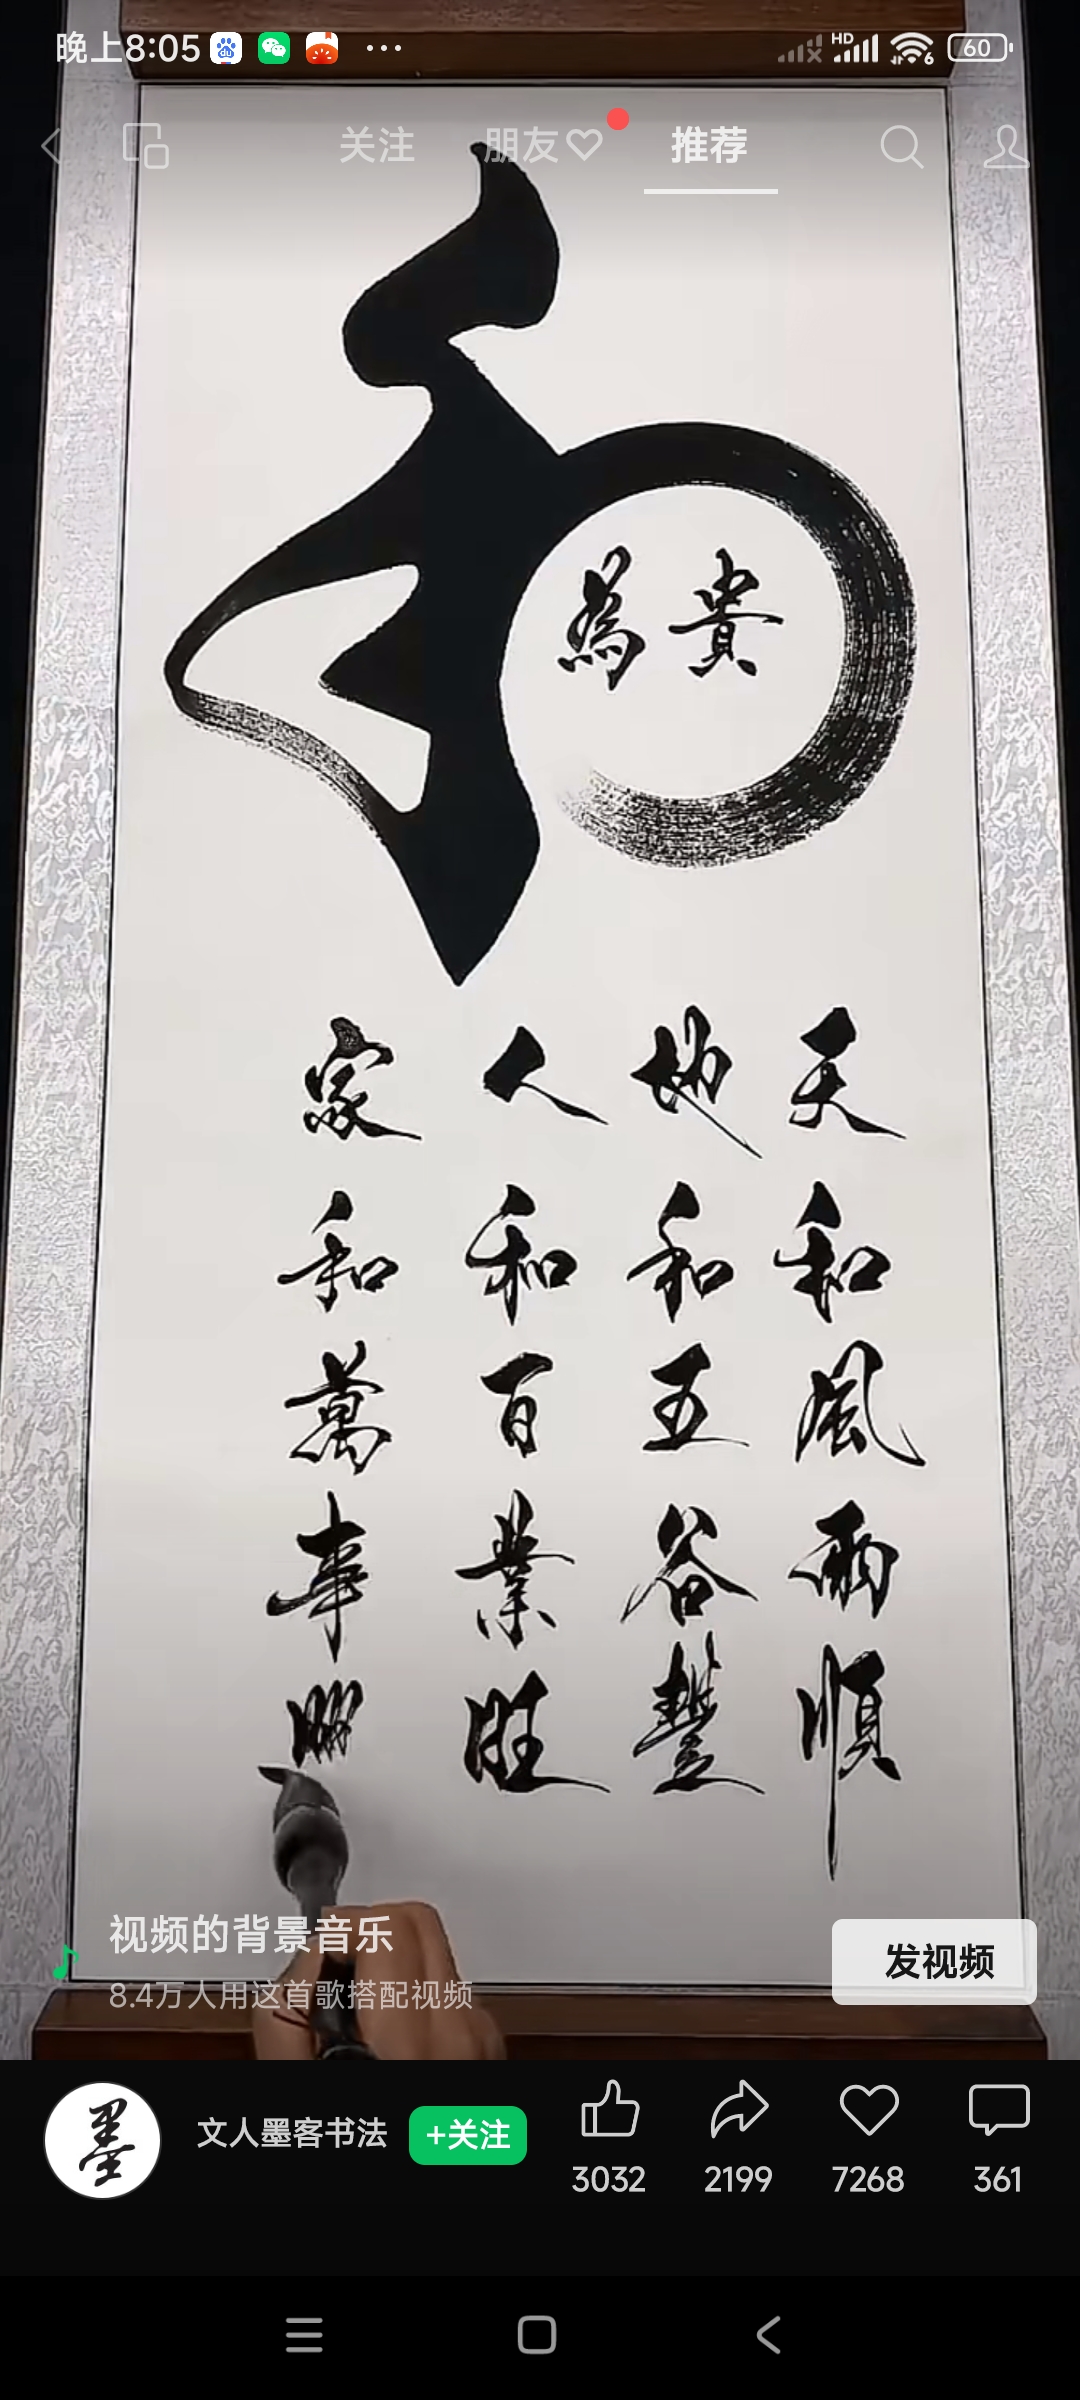 晚上8:05
HD
6
60
关注 朋友 推荐
和
為貴
天和風雨順
地和五谷豐
人和百業旺
家和萬事
视频的背景音乐
8.4万人用这首歌搭配视频
发视频
墨
文人墨客书法
+关注
3032 2199 7268 361